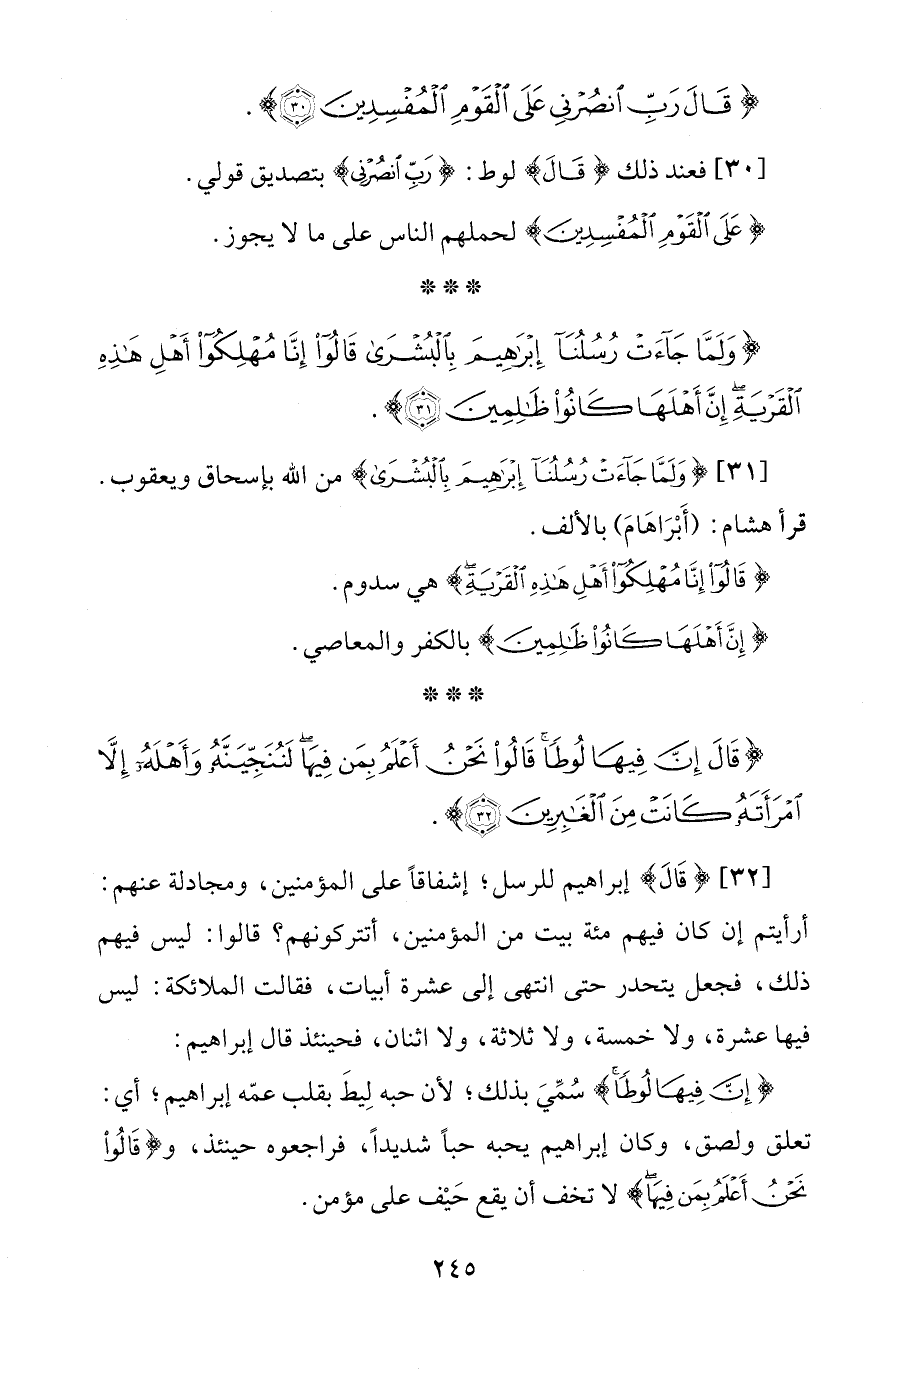 ﴿ قَالَ رَبِّ ٱنصُرْنِي عَلَى ٱلْقَوْمِ ٱلْمُفْسِدِينَ ﴿٣٠﴾ ﴾ .
[٣٠] فعند ذلك ﴿ قَالَ ﴾ لوط : ﴿ رَبِّ ٱنصُرْنِي ﴾ بتصديق قولي .
﴿ عَلَى ٱلْقَوْمِ ٱلْمُفْسِدِينَ ﴾ لحملهم الناس على ما لا يجوز .
* * *
﴿ وَلَمَّا جَآءَتْ رُسُلُنَآ إِبْرَٰهِيمَ بِٱلْبُشْرَىٰ قَالُوٓا۟ إِنَّا مُهْلِكُوٓا۟ أَهْلِ هَٰذِهِ
ٱلْقَرْيَةِ ۖ إِنَّ أَهْلَهَا كَانُوا۟ ظَٰلِمِينَ ﴿٣١﴾ ﴾ .
[٣١] ﴿ وَلَمَّا جَآءَتْ رُسُلُنَآ إِبْرَٰهِيمَ بِٱلْبُشْرَىٰ ﴾ من الله بإسحاق ويعقوب .
قرأ هشام : (أَبْرَاهَامَ) بالألف .
﴿ قَالُوٓا۟ إِنَّا مُهْلِكُوٓا۟ أَهْلِ هَٰذِهِ ٱلْقَرْيَةِ ۖ ﴾ هي سدوم .
﴿ إِنَّ أَهْلَهَا كَانُوا۟ ظَٰلِمِينَ ﴾ بالكفر والمعاصي .
* * *
﴿ قَالَ إِنَّ فِيهَا لُوطًا ۚ قَالُوا۟ نَحْنُ أَعْلَمُ بِمَن فِيهَا ۖ لَنُنَجِّيَنَّهُۥ وَأَهْلَهُۥٓ إِلَّا
ٱمْرَأَتَهُۥ كَانَتْ مِنَ ٱلْغَٰبِرِينَ ﴿٣٢﴾ ﴾ .
[٣٢] ﴿ قَالَ ﴾ إبراهيم للرسل ؛ إشفاقاً على المؤمنين ، ومجادلة عنهم :
أرأيتم إن كان فيهم مئة بيت من المؤمنين ، أتتركونهم؟ قالوا : ليس فيهم
ذلك ، فجعل يتحدر حتى انتهى إلى عشرة أبيات ، فقالت الملائكة : ليس
فيها عشرة ، ولا خمسة ، ولا ثلاثة ، ولا اثنان ، فحينئذ قال إبراهيم :
﴿ إِنَّ فِيهَا لُوطًا ۚ ﴾ سُمِّيَ بذلك ؛ لأن حبه لِيطَ بقلب عمّه إبراهيم ؛ أي :
تعلق ولصق ، وكان إبراهيم يحبه حباً شديداً ، فراجعوه حينئذ ، و﴿ قَالُوا۟
نَحْنُ أَعْلَمُ بِمَن فِيهَا ۖ ﴾ لا تخف أن يقع حَيْف على مؤمن .
٢٤٥